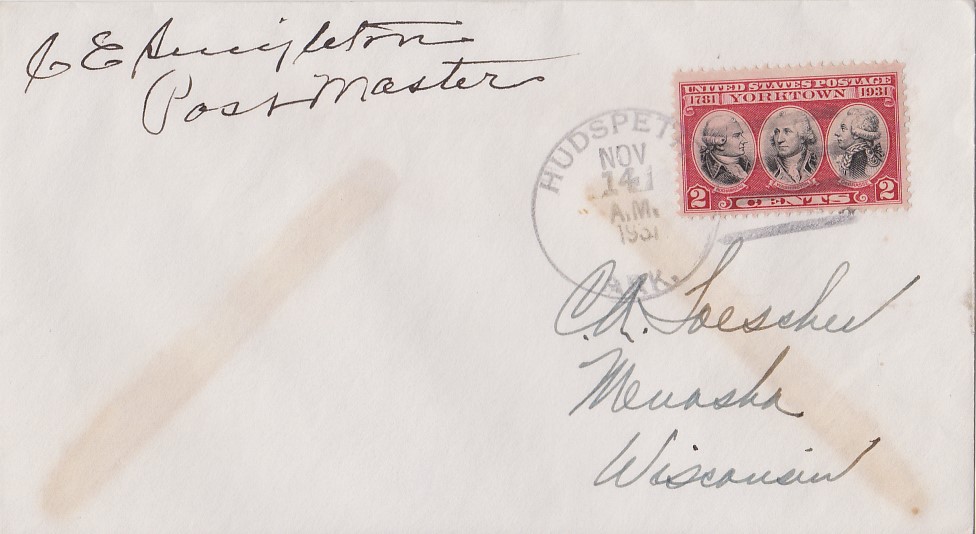 C E Singleton
Post Master
UNITED STATES POSTAGE
1781 YORKTOWN 1931
2 CENTS 2
HUDSPETH
NOV
14
A.M.
1931
ARK.
C.A. Loescher
Menasha
Wisconsin